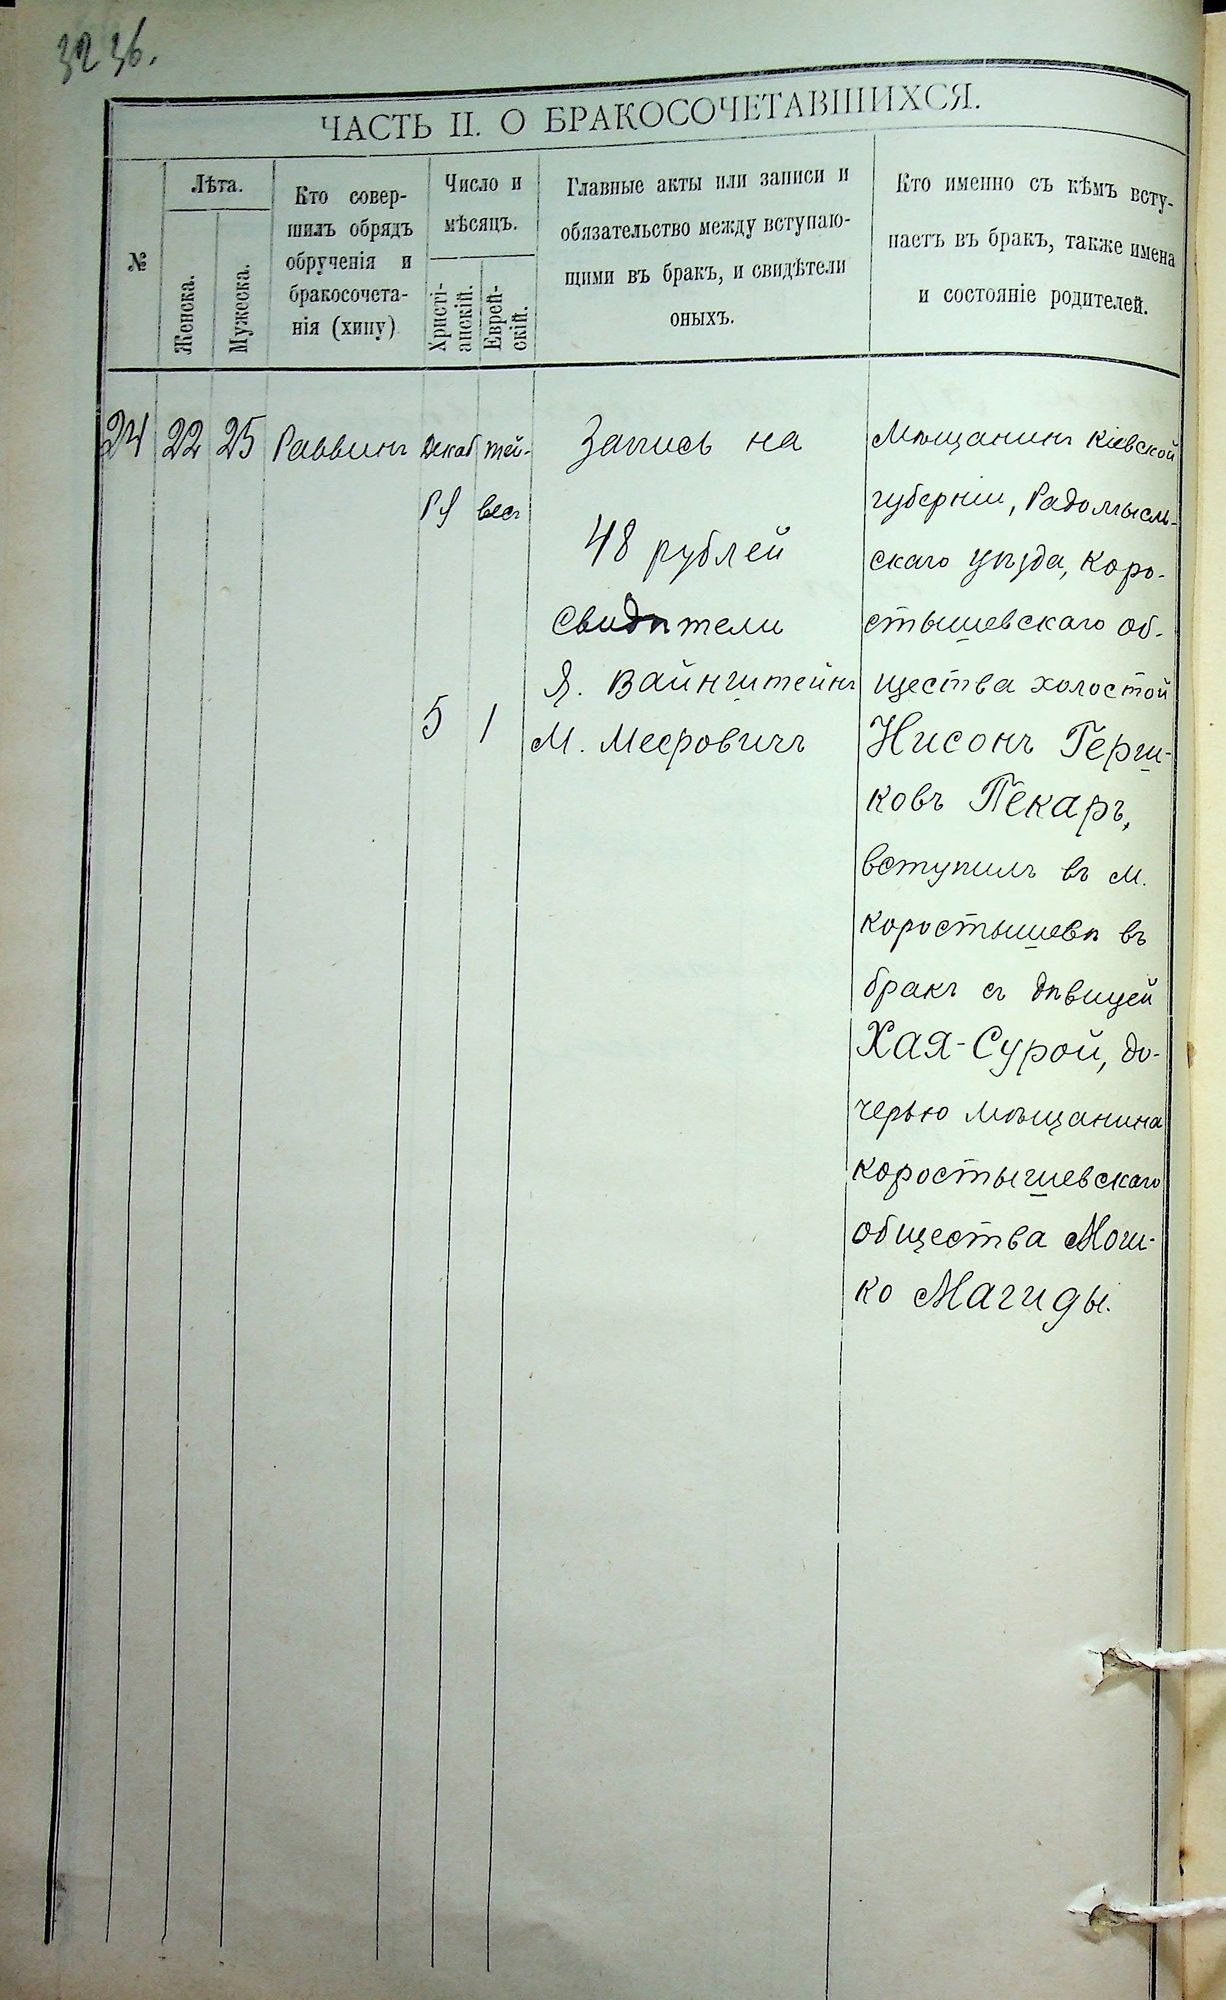 32 36.
ЧАСТЬ II. О БРАКОСОЧЕТАВШИХСЯ.
№
Лѣта.
Женска.
Мужеска.
Кто совер-
шилъ обрядъ
обрученія и
бракосочета-
нія (хипу)
Число и
мѣсяцъ.
Христі-
анскій.
Еврей-
скій.
Главные акты или записи и
обязательство между вступаю-
щими въ бракъ, и свидѣтели
оныхъ.
Кто именно съ кѣмъ всту-
паетъ въ бракъ, также имена
и состояніе родителей.
24 22 25 Раввинъ
Декаб
РЯ
5
тей-
весъ
1
Запись на
48 рублей
Свидѣтели
Я. Вайнштейнъ
М. Меєровичъ
Мѣщанинъ Кіевской
губерніи, Радомысль-
скаго уѣзда, Коро-
стышевскаго об-
щества холостой
Нисонъ Герш-
ковъ Пекаръ,
вступилъ въ м.
Коростышевѣ въ
бракъ съ дѣвицей
Хая-Сурой, до-
черью мѣщанина
Коростышевскаго
общества Мош-
ко Магиды.